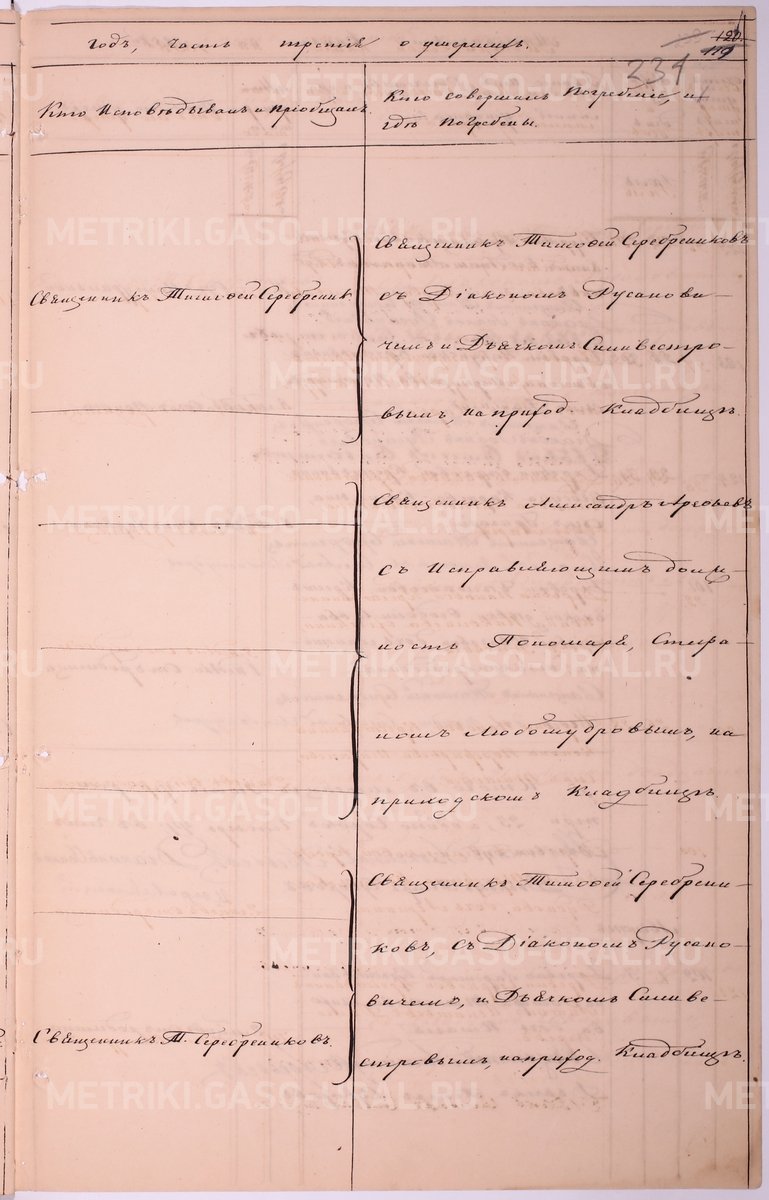 годъ, часть третія о умершихъ.
120.
119
231
Кто Исповѣдывалъ и пріобщалъ.
Кто совершалъ Погребеніе, и
гдѣ Погребены.
Священникъ Тимофей Серебренник
Священникъ Тимофей Серебрениковъ
съ Діакономъ Русанови-
чемъ и Дьячкомъ Силивестро-
вымъ, на приход. Кладбищѣ.
Священникъ Александръ Арефьевъ
съ Исправляющимъ долж-
ность Пономаря, Стефа-
номъ Любомудровымъ, на
приходскомъ Кладбищѣ.
Священникъ Т. Серебрениковъ.
Священникъ Тимофей Серебрени-
ковъ, съ Діакономъ Русано-
вичемъ, и Дьячкомъ Силиве-
стровымъ, на приход. Кладбищѣ.
METRIKI.GASO-URAL.RU